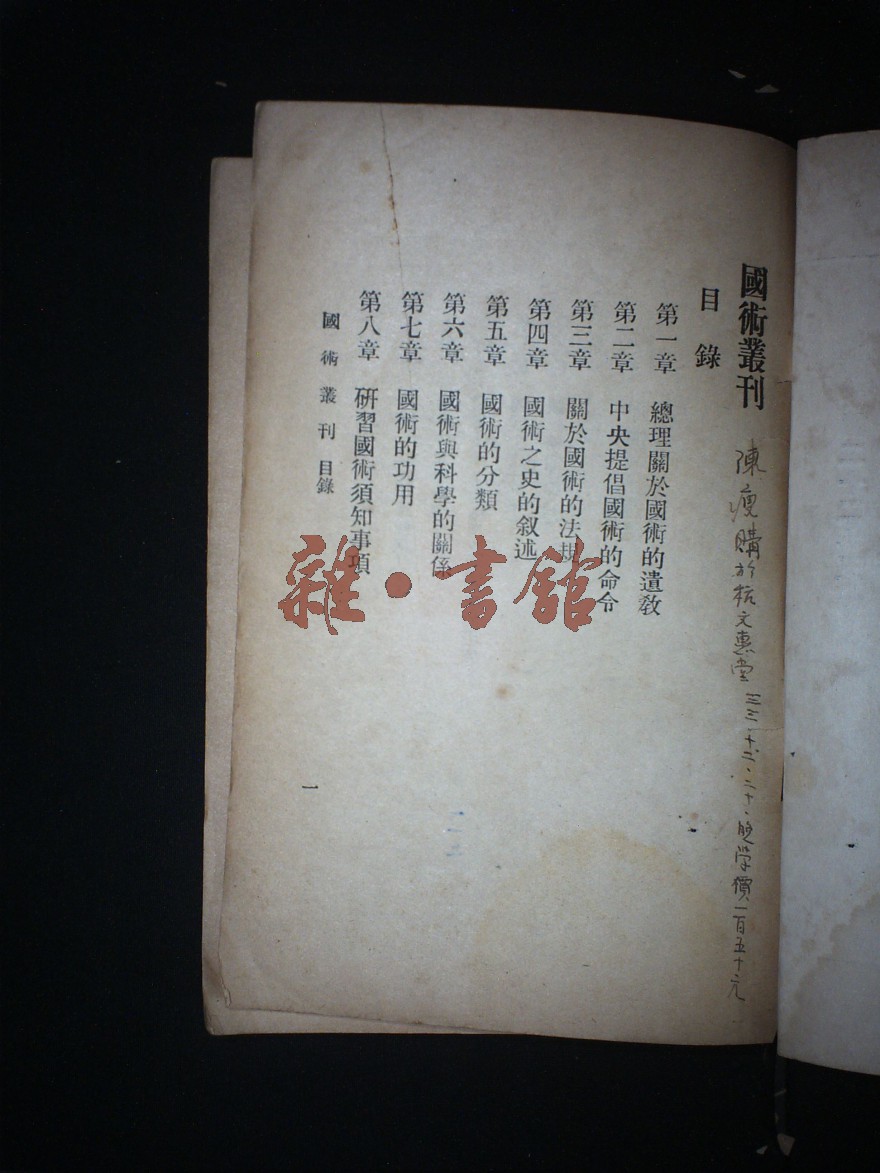 國術叢刊
陳瘦購於杭文惠堂 三三、十二、二十、 學價一百五十元
目錄
第一章 總理關於國術的遺敎
第二章 中央提倡國術的命令
第三章 關於國術的法規
第四章 國術之史的叙述
第五章 國術的分類
第六章 國術與科學的關係
第七章 國術的功用
第八章 研習國術須知事項
國術叢刊 目錄
一
雜·書館